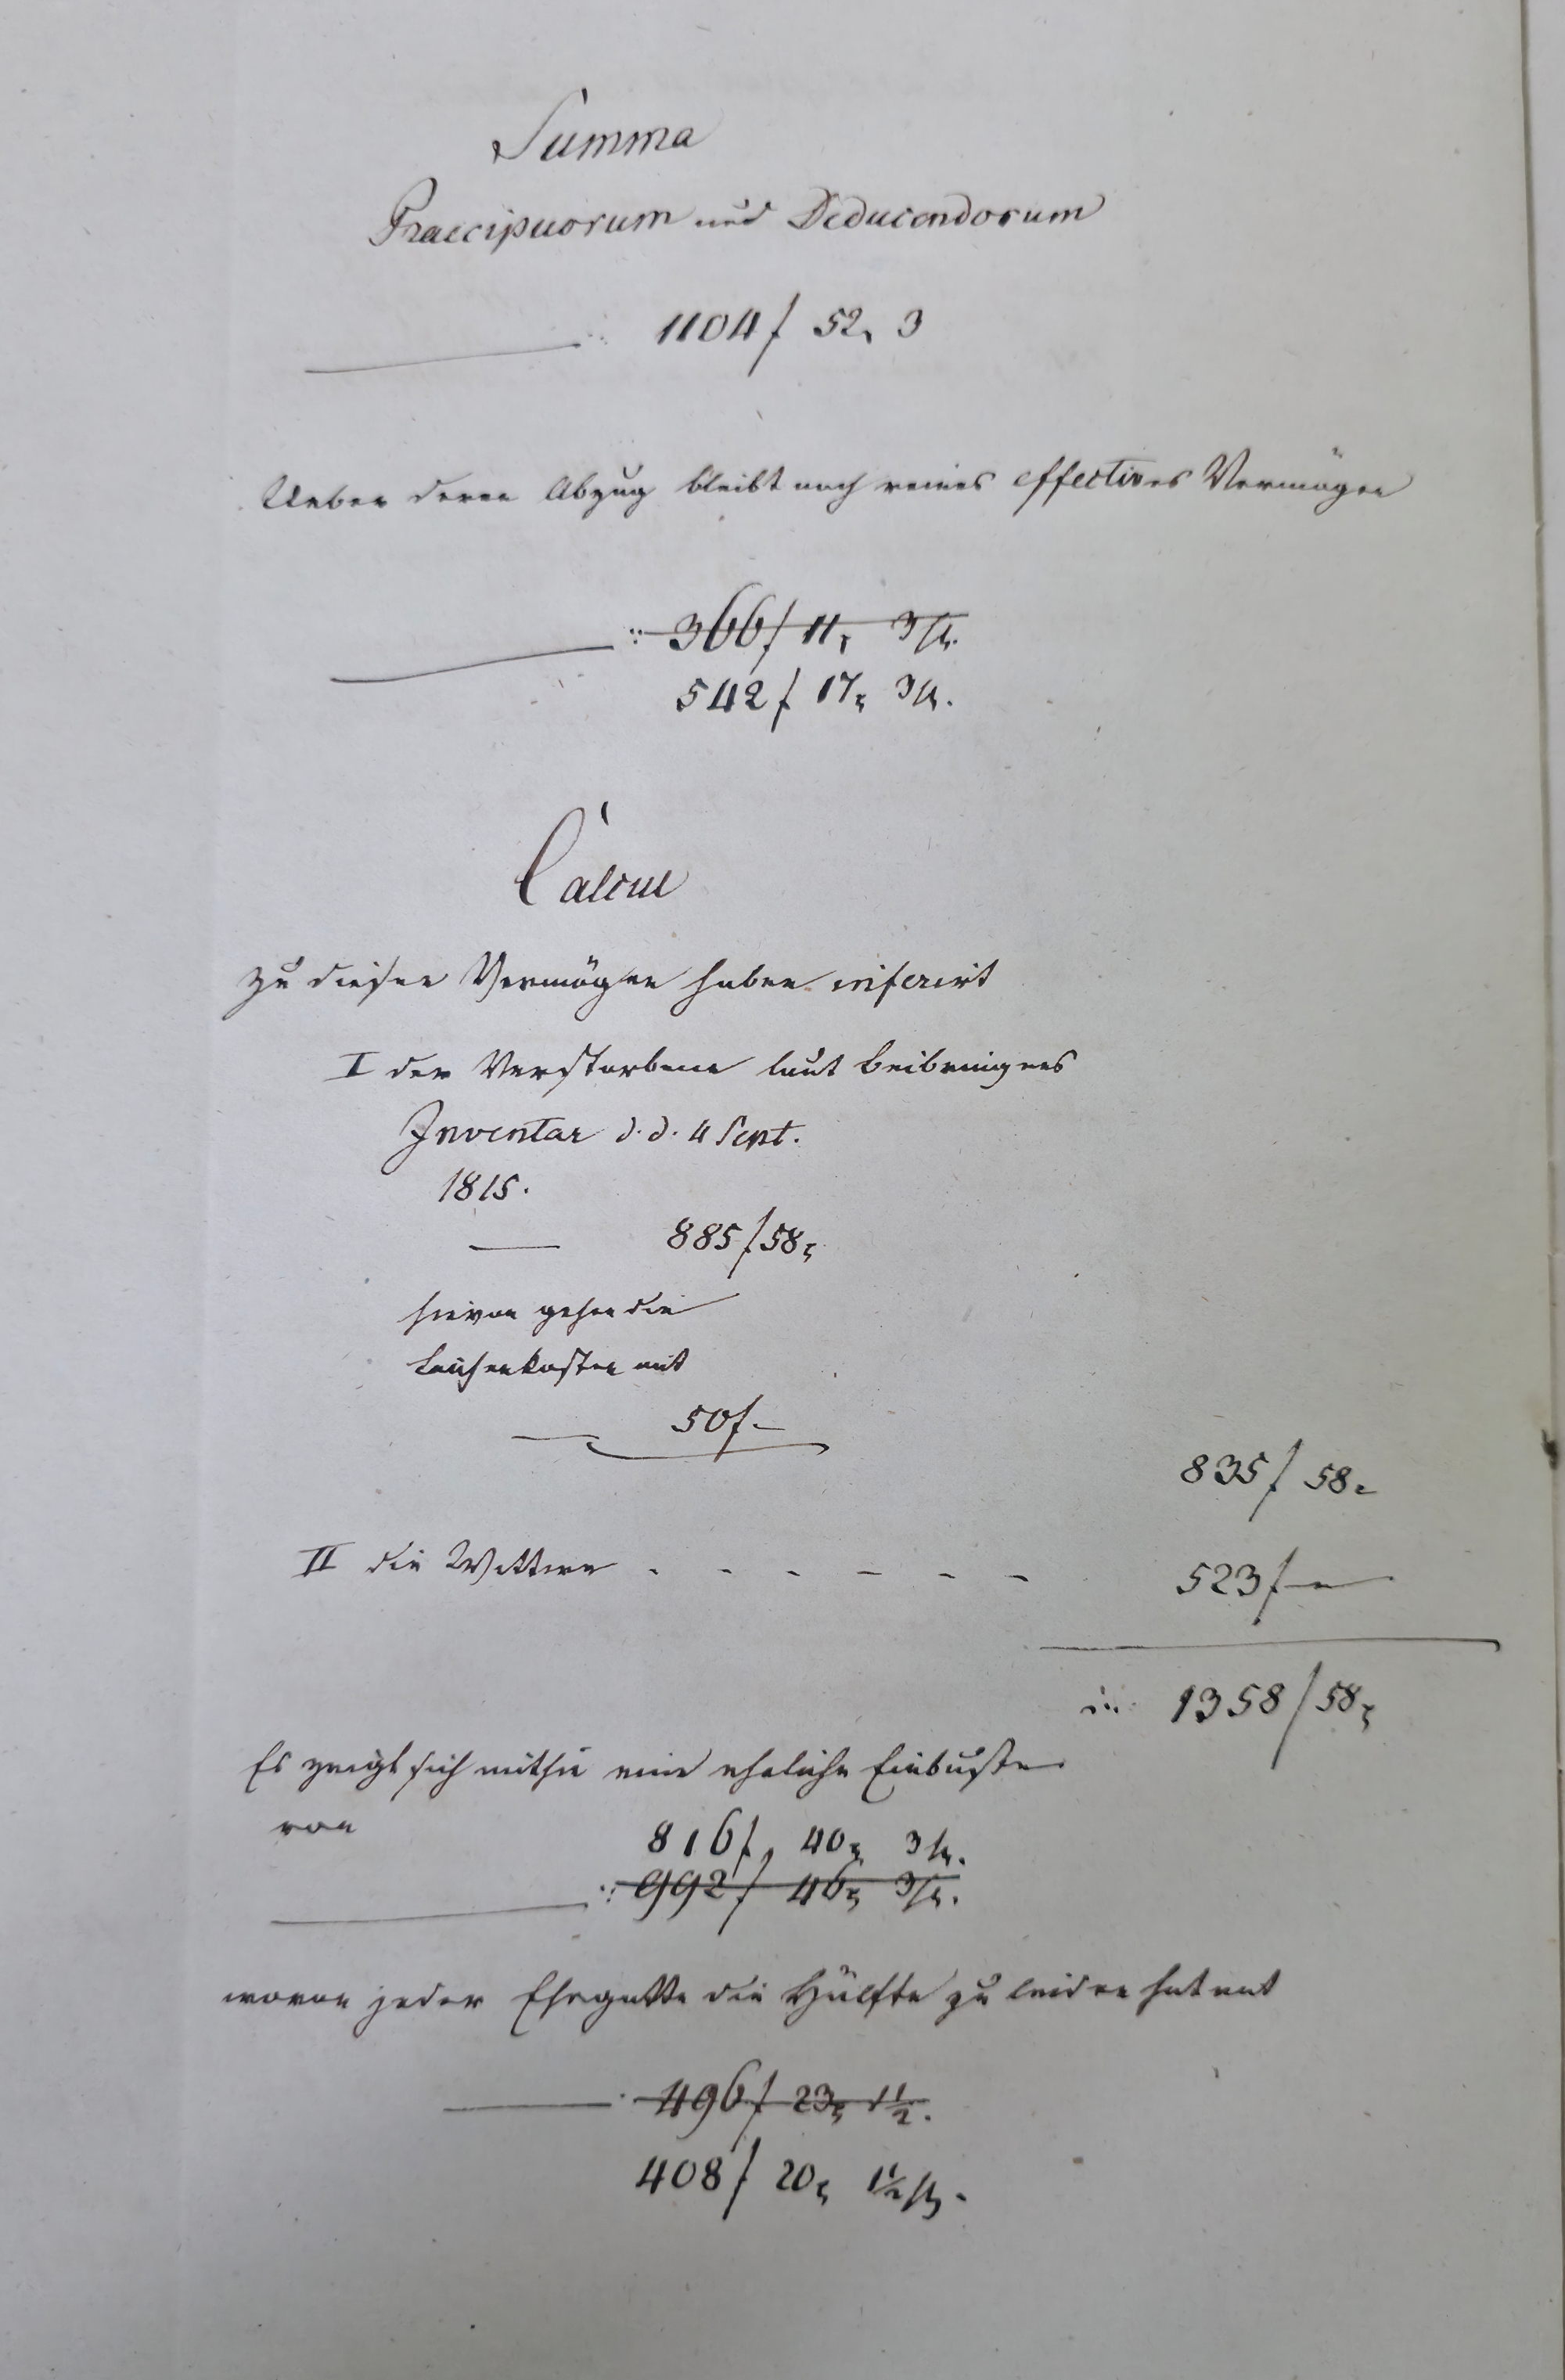 Summa
Praecipuorum und Deducendorum
1104 f 52. 3
Ueber deren Abzug bleibt noch reines effectives Vermögen
366 f 11 x 3 h.
542 f 17 x 3 h.
Calcul
zu diesen Vermögen haben inferirt
I der Verstorbene laut Beibringens
Inventar d. d. 4 Sept.
1815.
885 f 58 x
hievon gehen die
Leichenkosten mit
50 f -
835 f 58 x
II die Wittwe . - - - - - -
523 f —
1358 f 58 x
Es zeigt sich mithin eine eheliche Einbuße
von
816 f, 40 x 3 h.
992 f 46 x 3 h.
wovon jeder Ehegatte die Hälfte zu leiden hat mit
496 f 23 x 1 1/2.
408 f 20 x 1 1/2 h.